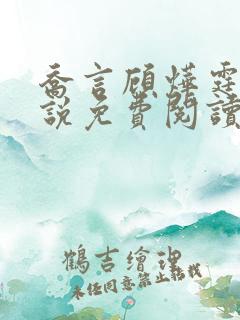 喬言顧燁霆
說免費閱讀
鶴吉繪理
未經同意禁止轉載